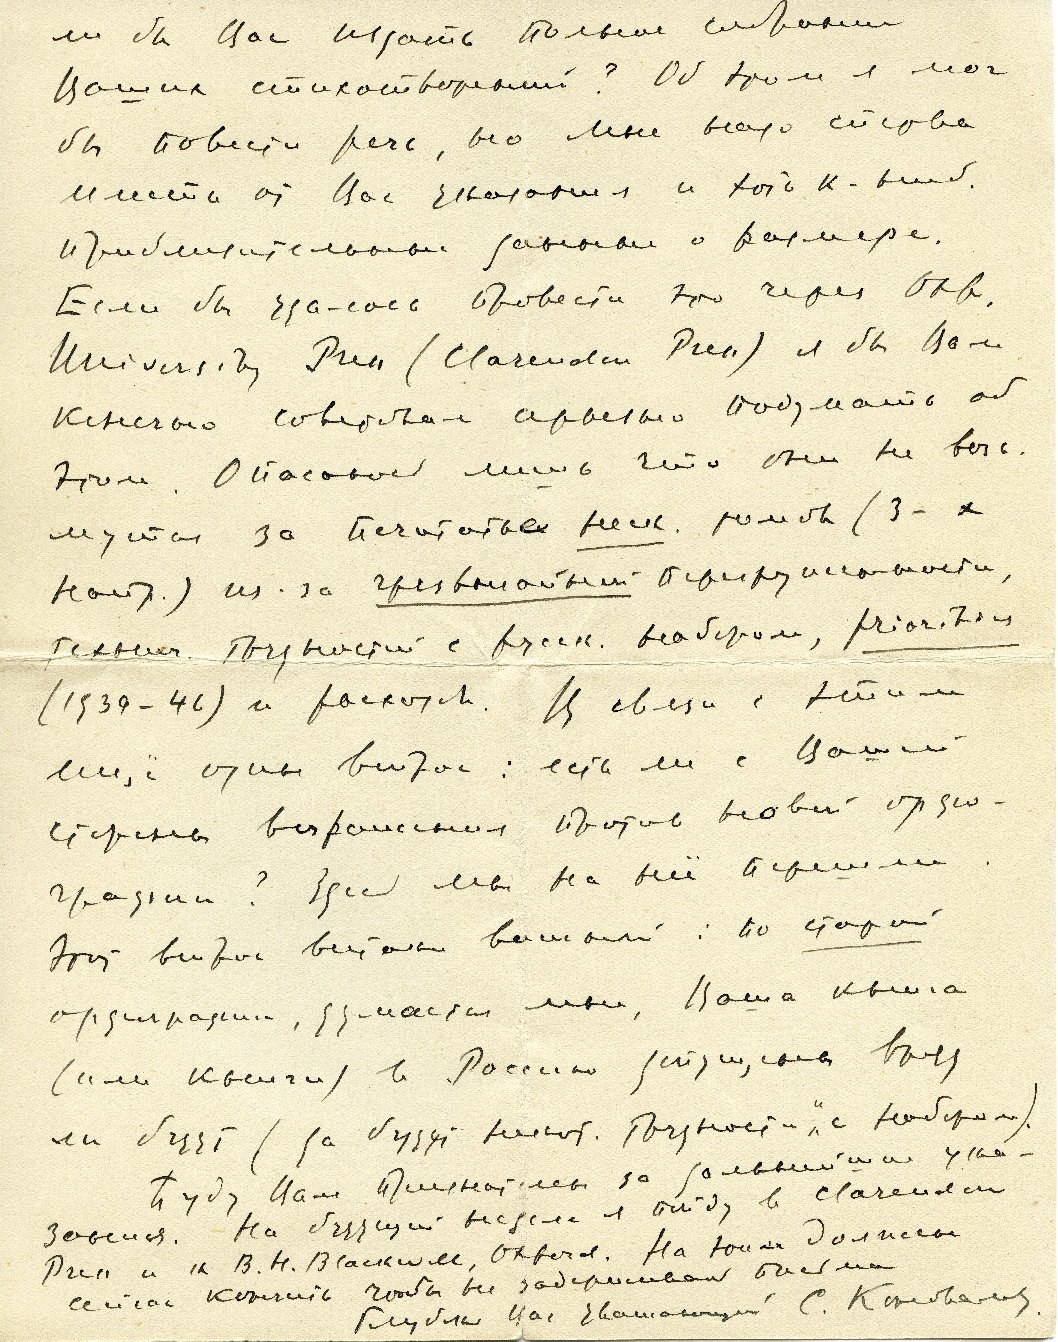 ли бы Вас издать полное собрание
Ваших стихотворений? Об этом я мог
бы повести речь, но мне надо сперва
иметь от Вас указания и хоть к.-ниб.
приблизительные данные о размере.
Если бы удалось провести это через Окф.
University Press (Clarendon Press) я бы Вам
конечно советовал серьезно подумать об
этом. Опасаюсь лишь что они не возь-
мутся за печатанье неск. томов (3-х
напр.) из-за чрезвычайной перегруженности,
технич. трудностей с русск. набором, priorities
(1939-46) и расходов. В связи с этим
ещё один вопрос: есть ли с Вашей
стороны возражения против новой орфо-
графии? Здесь мы на неё перешли.
Этот вопрос весьма важный: по старой
орфографии, думается мне, Ваша книга
(или книги) в Россию допущены вряд
ли будут (да будут некот. трудности и с набором).
Буду Вам признателен за дальнейшие ука-
зания. На будущей неделе я пойду в Clarendon
Press и к B.H. Blackwell, Oxford. На этом должен
сейчас кончить чтобы не задерживать письма
Глубоко Вас уважающий С. Коновалов.